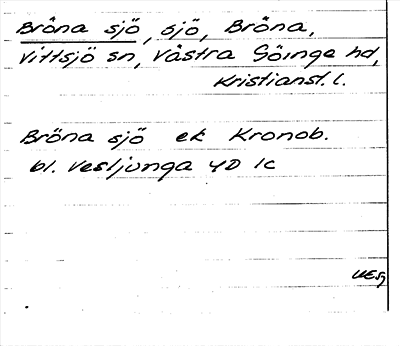 Bröna sjö, sjö, Bröna,
Vittsjö sn, Västra Göinge hd,
Kristianst. l.
Bröna sjö ek Kronob.
bl. Vesljunga 4D 1c